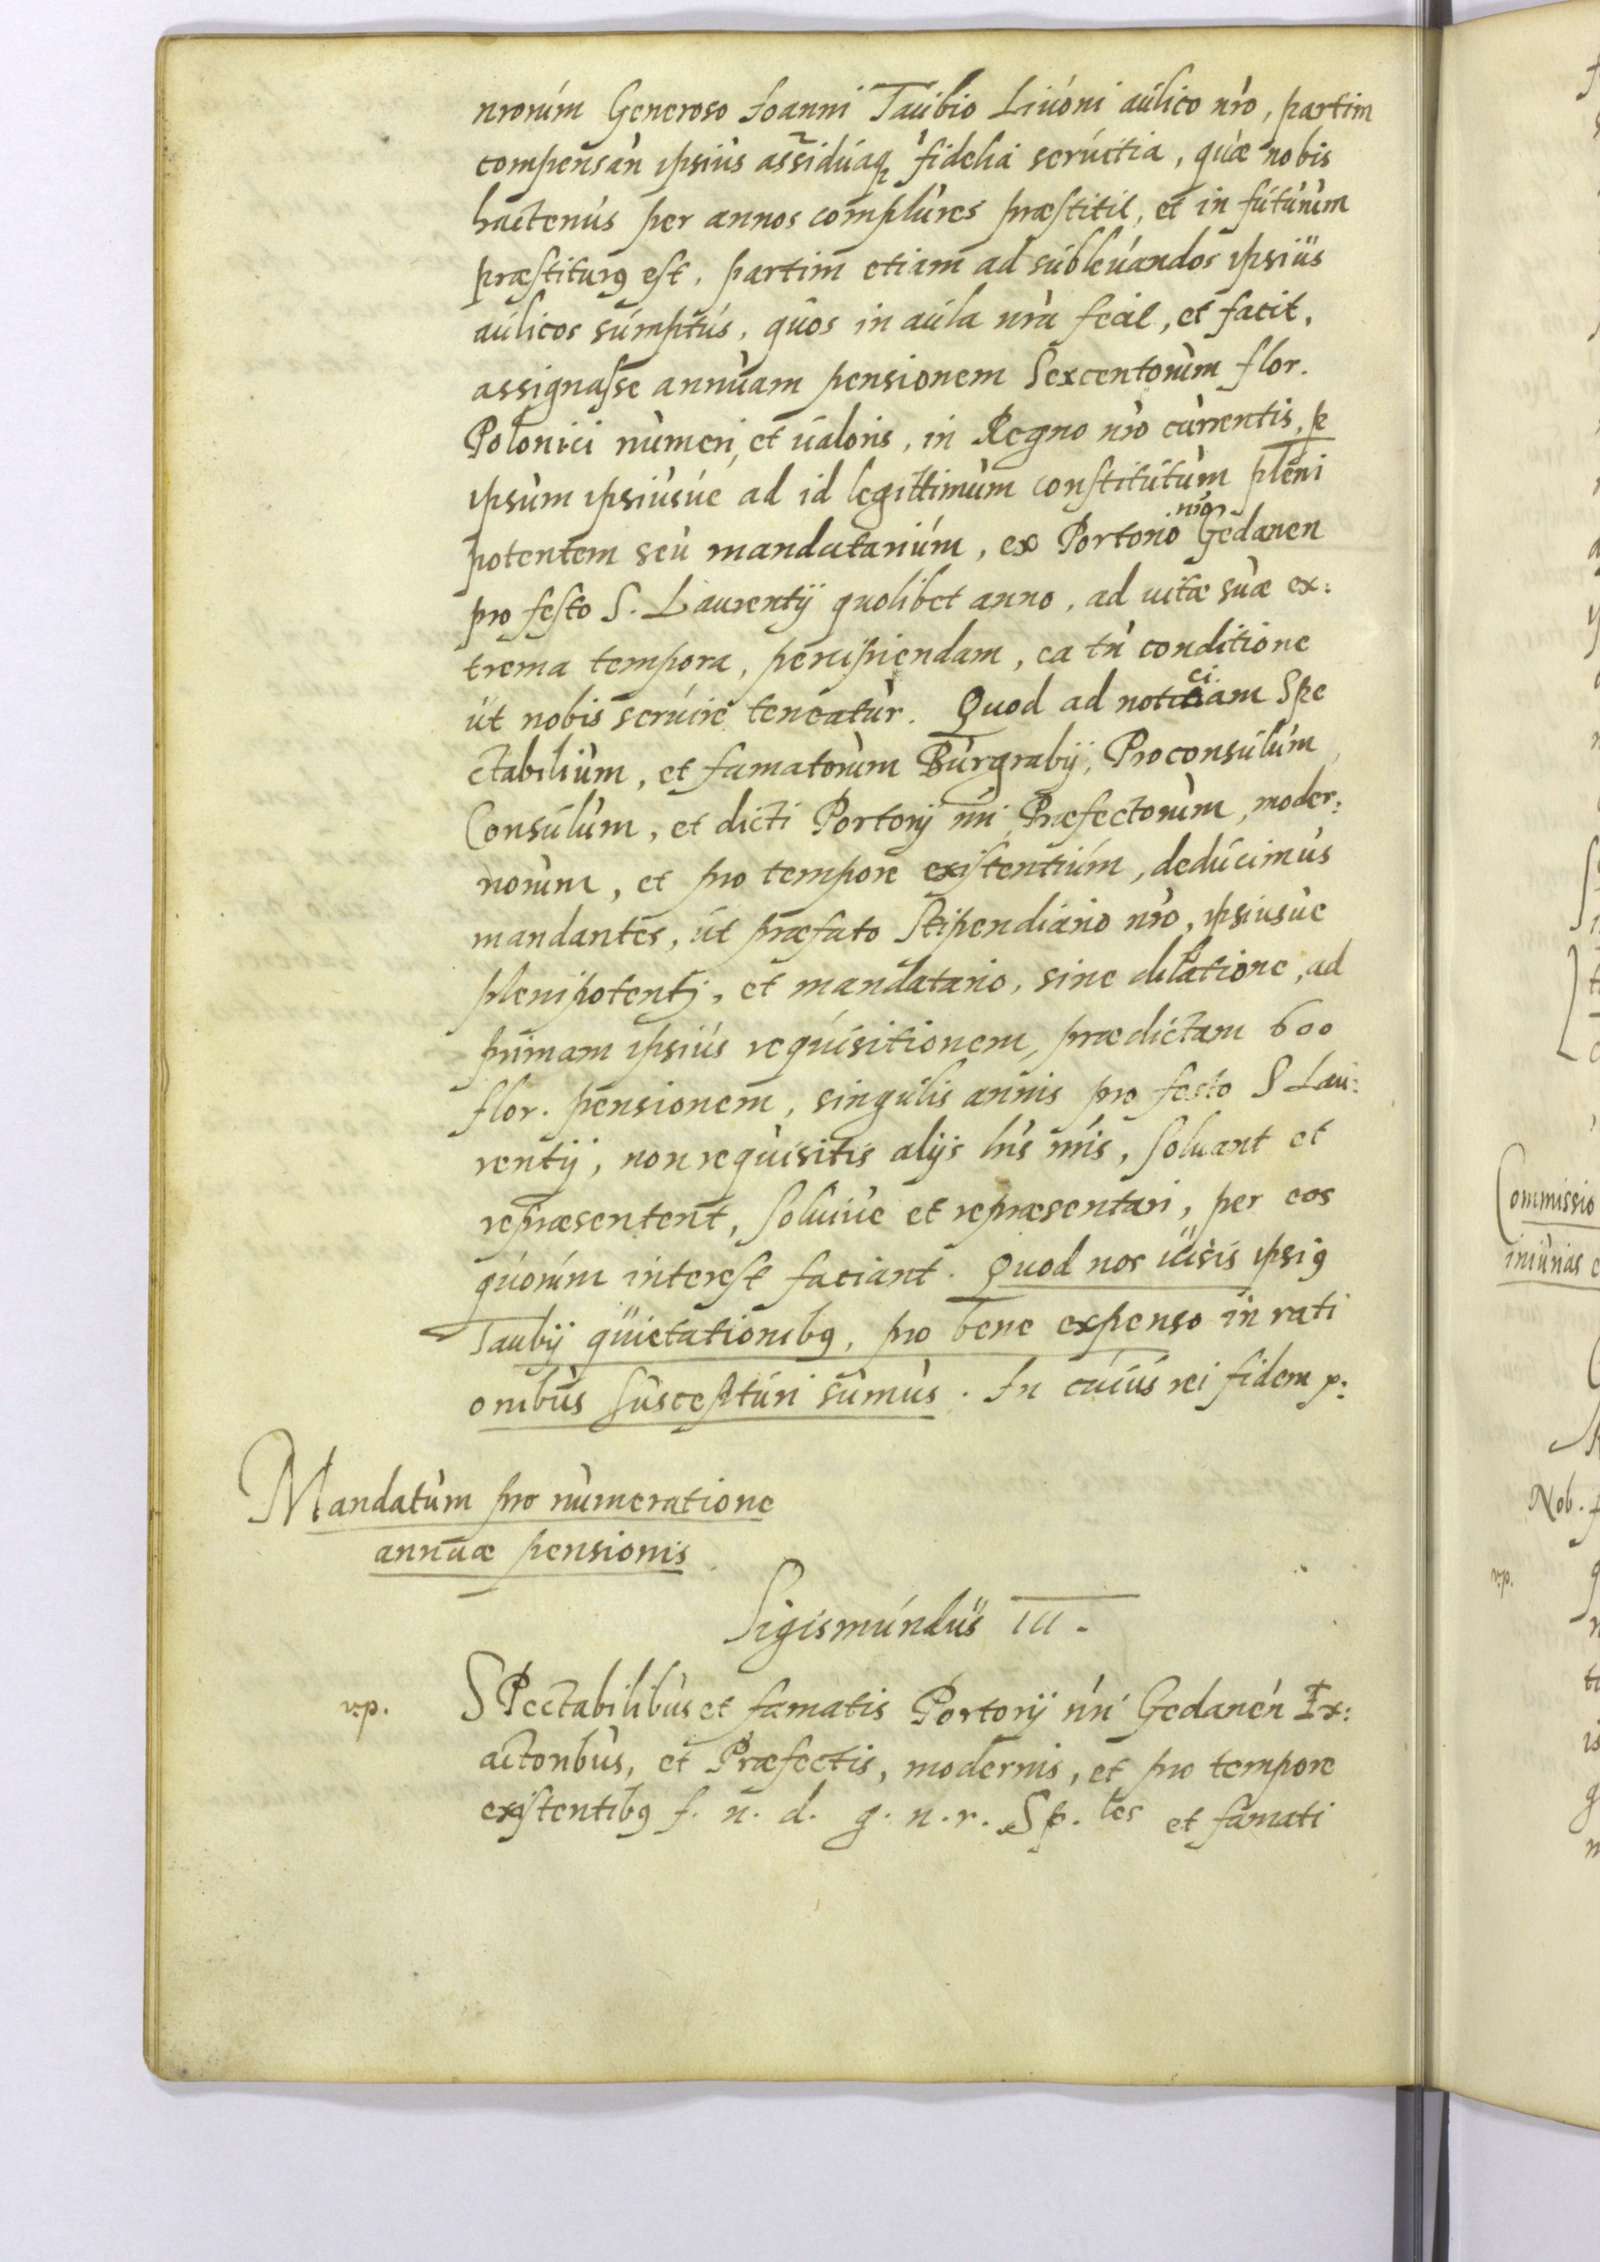 nrorum Generoso Joanni Taubio Livoni aulico nro, partim
compensan ipsius assiduaq fidelia servitia, quæ nobis
hactenus per annos complures præstitit, et in futurum
præstiturq est, partim etiam ad sublevandos ipsius
aulicos sumptus, quos in aula nra fecit, et facit,
assignasse annuam pensionem Sexcentorum flor.
Polonici numeri, et valoris, in Regno nro currentis, p
ipsum ipsiusve ad id legittimum constitutum pleni
potentem seu mandatarium, ex Portorio nro Gedanen
pro festo S. Laurentij quolibet anno, ad vitæ suæ ex:
trema tempora, percipiendam, ea tn conditione
ut nobis servire teneatur. Quod ad noticiam Spe
ctabilium, et famatorum Burgrabij, Proconsulum,
Consulum, et dicti Portorij nri Præfectorum, moder:
norum, et pro tempore existentium, deducimus
mandantes, ut præfato Stipendiario nro, ipsiusve
plenipotenti, et mandatario, sine dilatione, ad
primam ipsius requisitionem, prædictam 600
flor. pensionem, singulis annis pro festo S Lau:
rentij, non requisitis alijs lris nris, solvant et
repræsentent, solvive et repræsentari, per eos
quorum interest faciant. Quod nos visis ipsiq
Taubij quietationibq, pro bene expenso in rati
onibus suscepturi sumus. In cuius rei fidem p:
Mandatum pro numeratione
annuæ pensionis
Sigismundus III.
v.p. SPectabilibus et famatis Portorij nri Gedanen Ex:
actoribus, et Præfectis, modernis, et pro tempore
existentibq f. n. d. g. n. r. Sp. les et famati
Commissio
iniurias
Nob.
v.p.